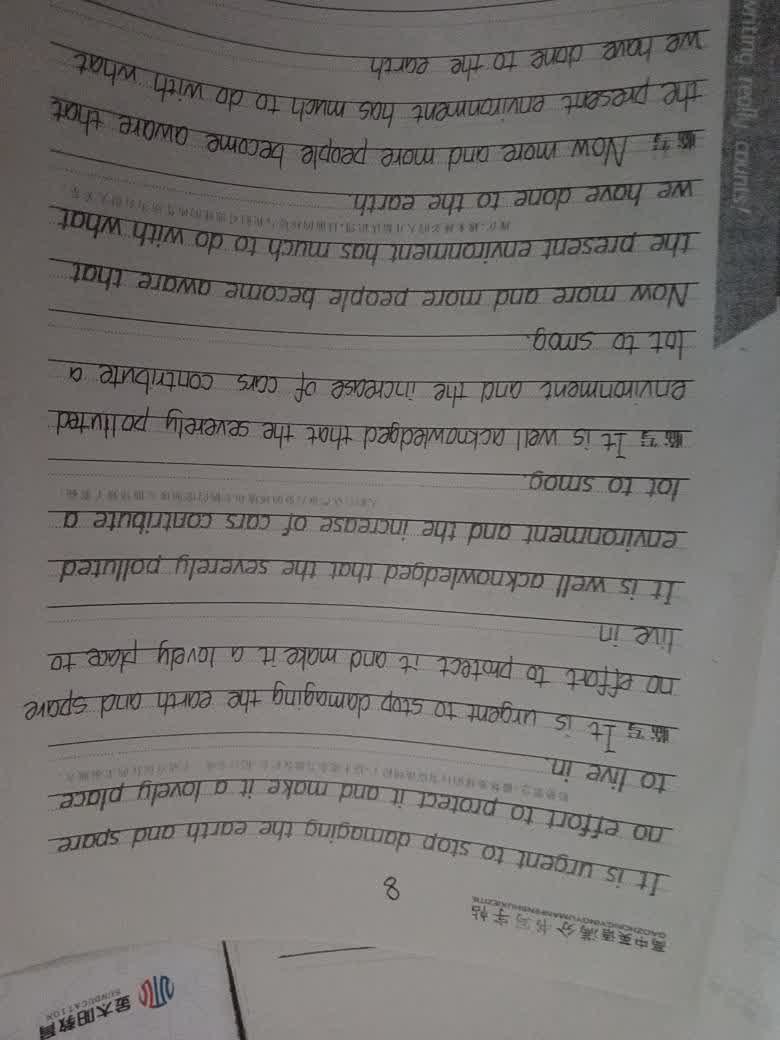 金太阳教育
SUNDUCATION
高中英语满分书写字帖
GAOZHONGYINGYUMANFENSHUXIEZITIE
8
It is urgent to stop damaging the earth and spare
no effort to protect it and make it a lovely place
to live in.
临写 It is urgent to stop damaging the earth and spare
no effort to protect it and make it a lovely place to
live in
It is well acknowledged that the severely polluted
environment and the increase of cars contribute a
lot to smog.
临写 It is well acknowledged that the severely polluted
environment and the increase of cars contribute a
lot to smog.
Now more and more people become aware that
the present environment has much to do with what
we have done to the earth.
临写 Now more and more people become aware that
the present environment has much to do with what
we have done to the earth
writing really counts!